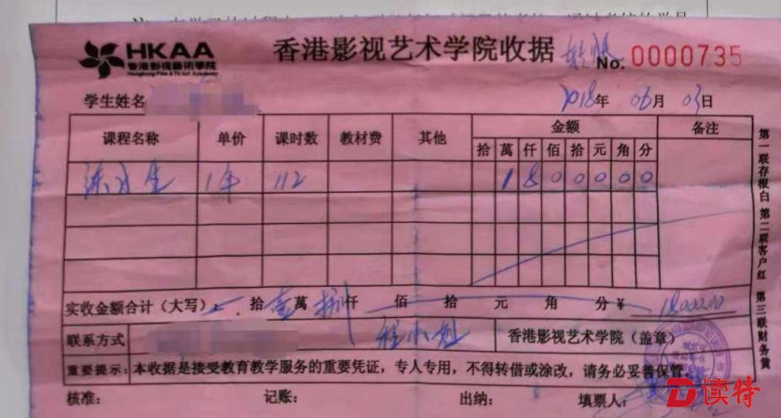 HKAA
香港影視藝術學院
Hongkong Film & TV Art Academy
香港影视艺术学院收据
No. 0000735
学生姓名
2018年 06月 03日
课程名称 单价 课时数 教材费 其他 金额 备注
拾 萬 仟 佰 拾 元 角 分
练习生 1年 112 1 8 0 0 0 0 0
实收金额合计(大写): 拾 壹 萬 捌 仟 佰 拾 元 角 分 ¥ 18000.00
联系方式 程小姐 香港影视艺术学院(盖章)
重要提示: 本收据是接受教育教学服务的重要凭证,专人专用,不得转借或涂改,请务必妥善保管。
核准: 记账: 出纳: 填票人:
第一联存根白 第二联客户红 第三联财务黄
读特